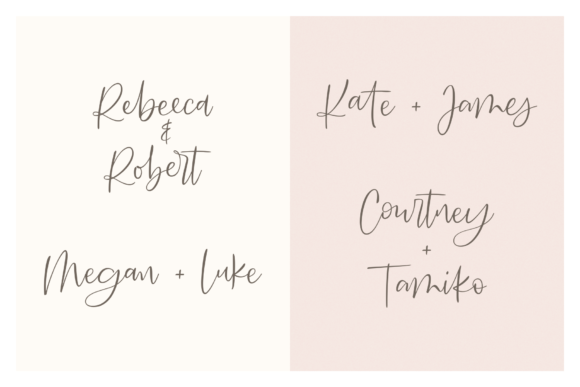 Rebecca
&
Robert
Megan + Luke
Kate + James
Courtney
+
Tamiko